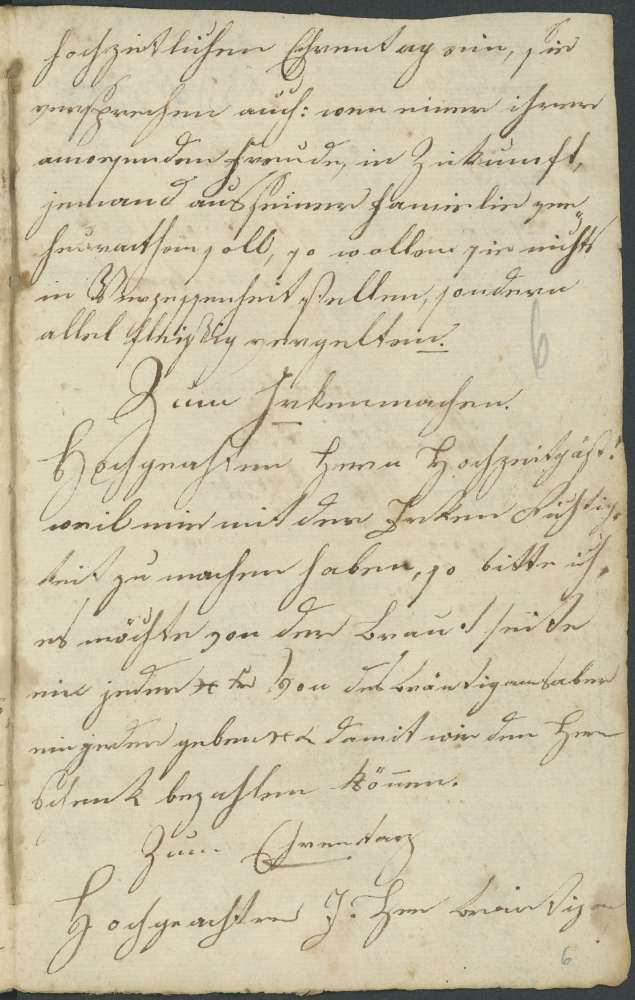 hochzeitlichen Ehrentag ein, sie
versprechen auch: wen einer ihrer
anwesenden Freude, in Zukunft,
jemand aus seiner Familie ver
heurathen soll, so wollen sie nichts
in Vergessenheit stellen, sondern
alles fleißig vergelten.
Zum Irkenmachen.
Hochgeachten Herrn Hochzeitgäst!
weil wir mit der Irken Richtig-
keit zu machen haben, so bitte ich,
es möchte von der Braut seite
ein jeder xr Von des Bräutigams aber
ein jeder geben damit wir den Herr
Schenk bezahlen können.
Zum Ehrentanz
Hochgeachten J. Herr Bräutigam
6
6